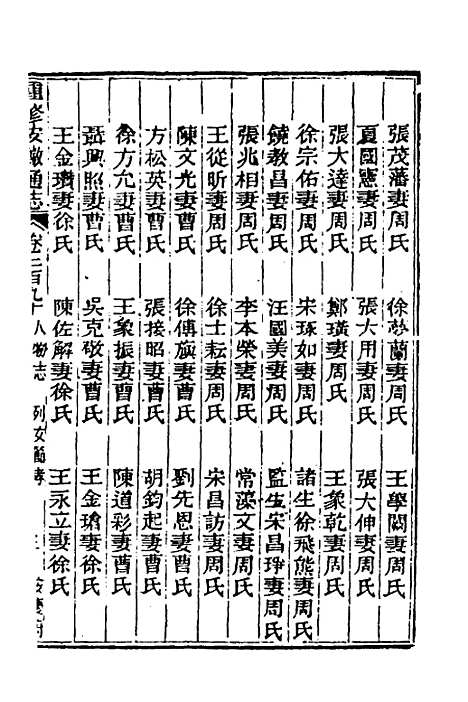 張茂藩妻周氏 徐夢蘭妻周氏 王學閎妻周氏
夏國憲妻周氏 張大用妻周氏 張大伸妻周氏
張大達妻周氏 鄭璜妻周氏 王象乾妻周氏
徐宗佑妻周氏 宋琢如妻周氏 諸生徐飛熊妻周氏
饒教昌妻周氏 汪國美妻周氏 監生宋昌琤妻周氏
張兆相妻周氏 李本榮妻周氏 常藻文妻周氏
王從昕妻周氏 徐士耘妻周氏 宋昌訪妻周氏
陳文光妻曹氏 徐傅旗妻曹氏 劉先恩妻曹氏
方松英妻曹氏 張接昭妻曹氏 胡鈞起妻曹氏
徐方允妻曹氏 王象振妻曹氏 陳道彩妻曹氏
聶興照妻曹氏 吳克敬妻曹氏 王金瑲妻徐氏
王金瓚妻徐氏 陳佐解妻徐氏 王永立妻徐氏
重修安徽通志 卷二百九十 人物志 列女 三